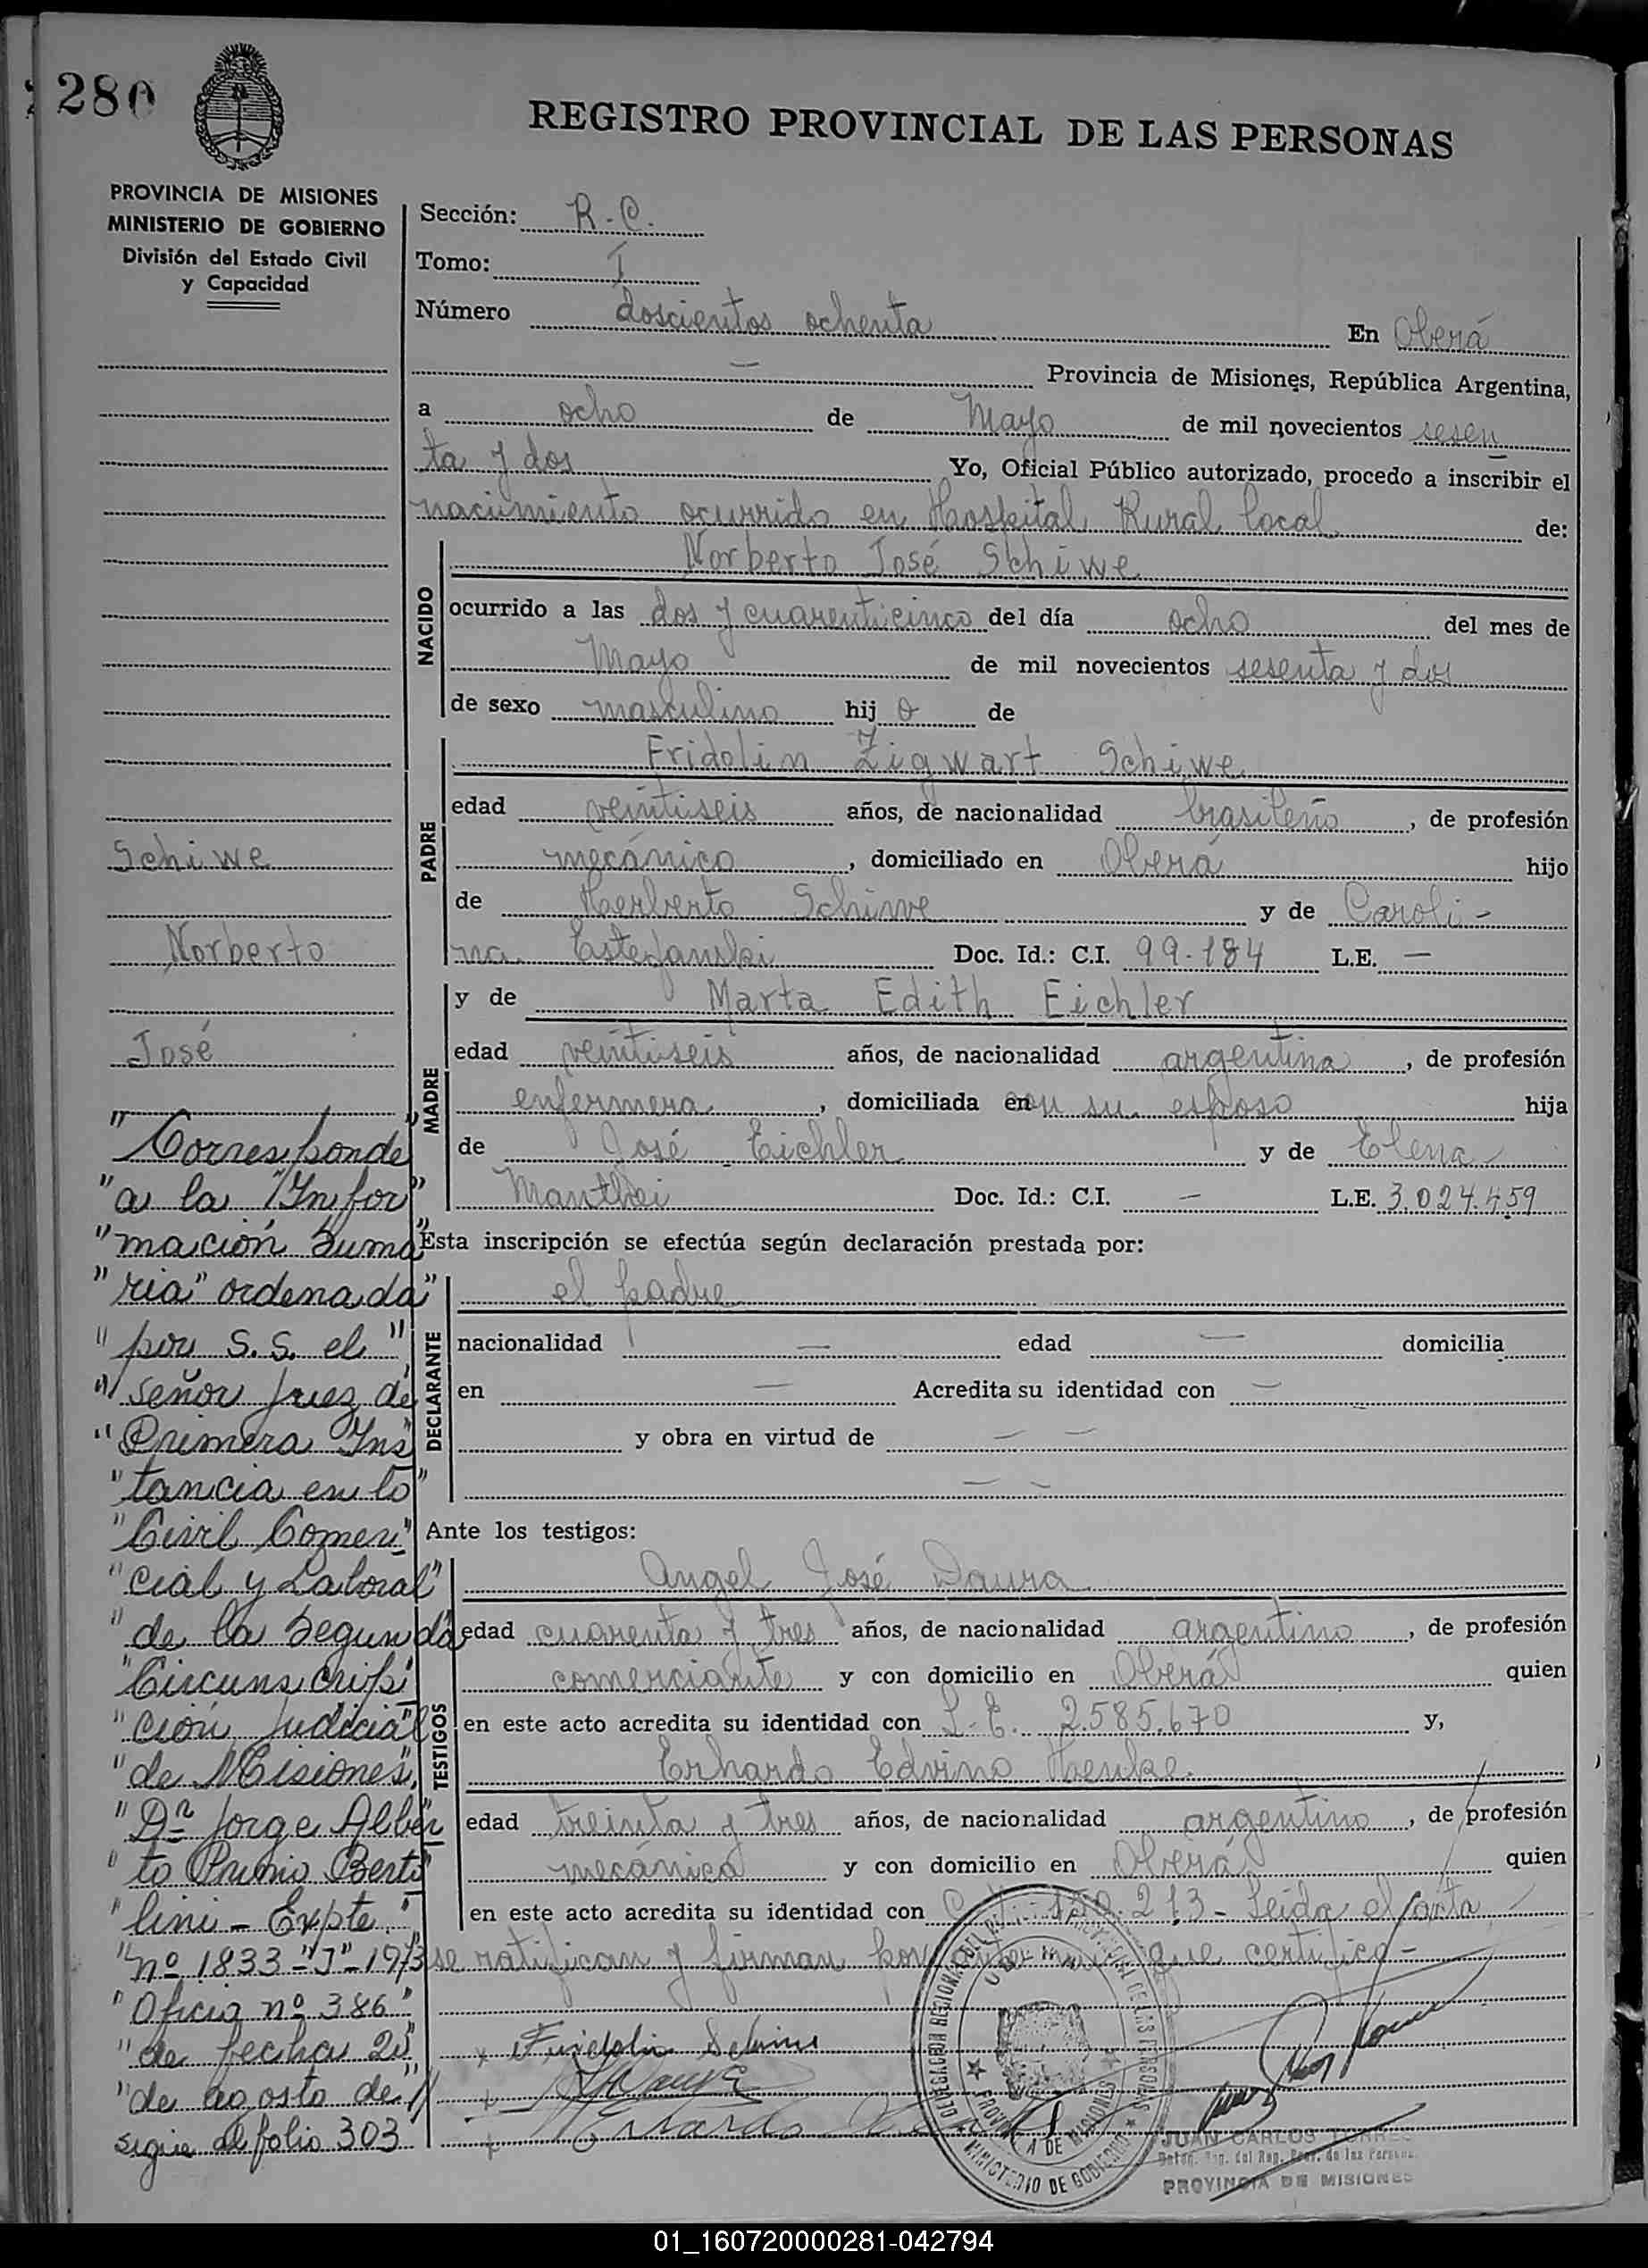 280
REGISTRO PROVINCIAL DE LAS PERSONAS
PROVINCIA DE MISIONES
MINISTERIO DE GOBIERNO
División del Estado Civil
y Capacidad
Sección: R. C.
Tomo: I
Número doscientos ochenta En Oberá
— Provincia de Misiones, República Argentina,
a ocho de Mayo de mil novecientos sesen
ta y dos Yo, Oficial Público autorizado, procedo a inscribir el
nacimiento ocurrido en Hospital Rural local de:
NACIDO
Norberto José Schiwe
ocurrido a las dos y cuarenticinco del día ocho del mes de
Mayo de mil novecientos sesenta y dos
de sexo masculino hij o de
PADRE
Fridolin Zigwart Schiwe
edad veintiseis años, de nacionalidad brasileño, de profesión
mecánico, domiciliado en Oberá hijo
de Herberto Schiwe y de Caroli-
na Estefanski Doc. Id.: C.I. 99.184 L.E. —
MADRE
y de Marta Edith Eichler
edad veintiseis años, de nacionalidad argentina, de profesión
enfermera, domiciliada en con su esposo hija
de José Eichler y de Elena
Manthei Doc. Id.: C.I. — L.E. 3.024.459
Esta inscripción se efectúa según declaración prestada por:
DECLARANTE
el padre
nacionalidad — edad — domicilia
en — Acredita su identidad con —
y obra en virtud de — —
— —
Ante los testigos:
TESTIGOS
Angel José Daura
edad cuarenta y tres años, de nacionalidad argentino, de profesión
comerciante y con domicilio en Oberá quien
en este acto acredita su identidad con L.E. 2.585.670 y,
Erhardo Edvino Henke
edad treinta y tres años, de nacionalidad argentino, de profesión
mecánico y con domicilio en Oberá quien
en este acto acredita su identidad con 213 - Leída el acta
se ratifican y firman por ante mi que certifico-
Schiwe
Norberto
José
"Corresponde"
"a la "Infor"
"mación Suma"
"ria" ordenada"
"por S. S. el"
"señor Juez de
"Primera Ins"
"tancia en lo"
"Civil Comer"
"cial y Laboral"
"de la Segunda
"Circunscrip"
"ción Judicial
"de Misiones",
"Dr. Jorge Alber
"to Primo Berto"
"lini - Expte."
"nº 1833-"J"-1973
"Oficio nº 386"
"de fecha 23"
"de agosto de"//
sigue al folio 303
Fridolin Schiwe
DELEGACION REGIONAL DEL REG. PROVINCIAL DE LAS PERSONAS
OBERA
PROVINCIA DE MISIONES
MINISTERIO DE GOBIERNO
JUAN CARLOS TORRES
PROVINCIA DE MISIONES
01_160720000281-042794